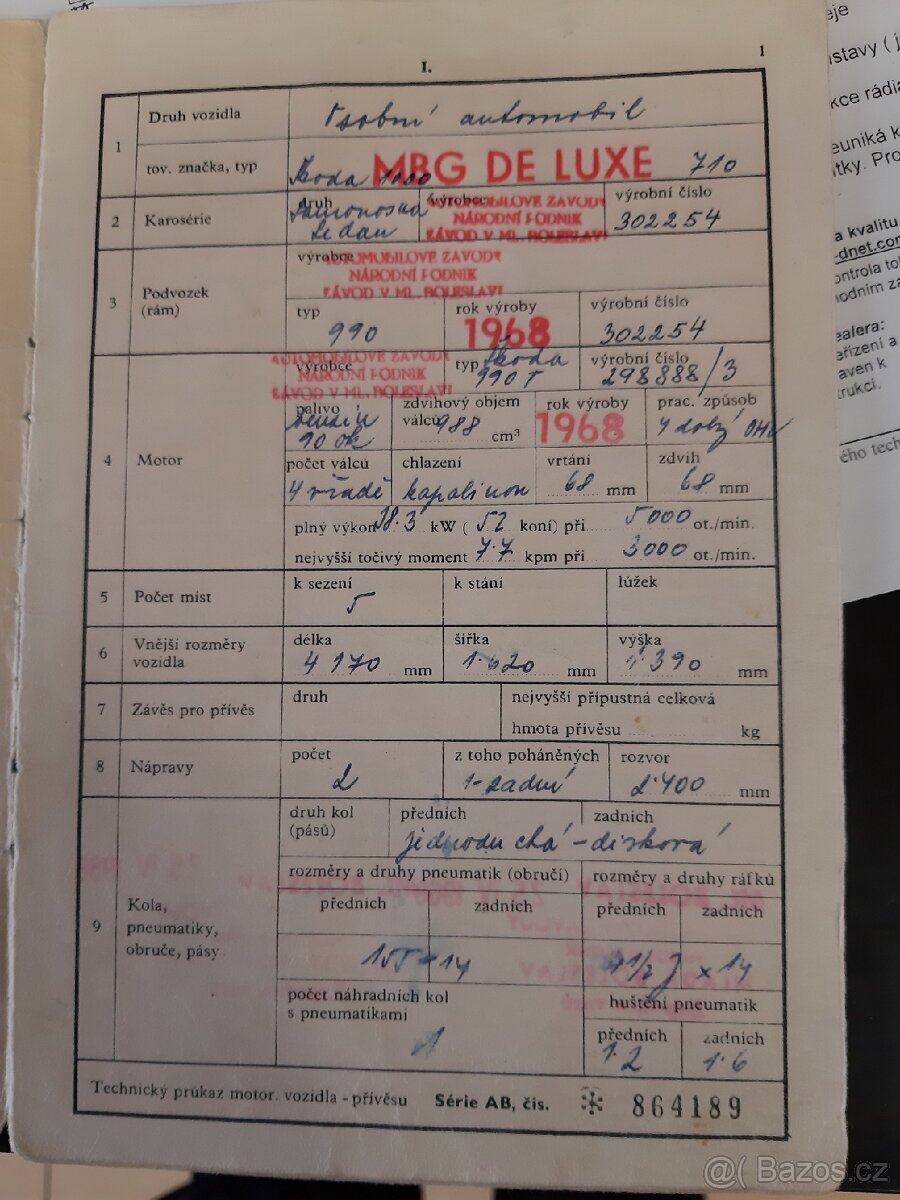 I.
1
1
Druh vozidla
Osobní automobil
tov. značka, typ
Škoda 1000 MBG DE LUXE 710
2
Karosérie
druh
Samonosná
Sedan
výrobce
AUTOMOBILOVÉ ZÁVODY
NÁRODNÍ PODNIK
ZÁVOD V ML. BOLESLAVI
výrobní číslo
302254
3
Podvozek
(rám)
výrobce
AUTOMOBILOVÉ ZÁVODY
NÁRODNÍ PODNIK
ZÁVOD V ML. BOLESLAVI
typ
990
rok výroby
1968
výrobní číslo
302254
4
Motor
výrobce
AUTOMOBILOVÉ ZÁVODY
NÁRODNÍ PODNIK
ZÁVOD V ML. BOLESLAVI
typ Škoda
990 T
výrobní číslo
298888/3
palivo
benzin
90 ok
zdvihový objem
válců 988 cm³
rok výroby
1968
prac. způsob
4 dobý OHV
počet válců
4 v řadě
chlazení
kapalinou
vrtání
68 mm
zdvih
68 mm
plný výkon 38.3 kW ( 52 koní) při 5000 ot./min.
nejvyšší točivý moment 7.7 kpm při 3000 ot./min.
5
Počet míst
k sezení
5
k stání
lůžek
6
Vnější rozměry
vozidla
délka
4170 mm
šířka
1.620 mm
výška
1.390 mm
7
Závěs pro přívěs
druh
nejvyšší přípustná celková
hmota přívěsu kg
8
Nápravy
počet
2
z toho poháněných
1-zadní
rozvor
2.400 mm
9
Kola,
pneumatiky,
obruče, pásy
druh kol
(pásů)
předních
zadních
jednoduchá - disková
rozměry a druhy pneumatik (obručí)
rozměry a druhy ráfků
předních
zadních
předních
zadních
155 × 14
4 1/2 J × 14
počet náhradních kol
s pneumatikami
1
huštění pneumatik
předních
1.2
zadních
1.6
Technický průkaz motor. vozidla - přívěsu Série AB, čís. 864189
eje
stavy ( j
kce rádia
euniká k
tky. Pro
a kvalitu
dnet.com
ontrola to
odním za
ealera:
eřízení a
aven k
trukcí.
ého tech
@( Bazos.cz